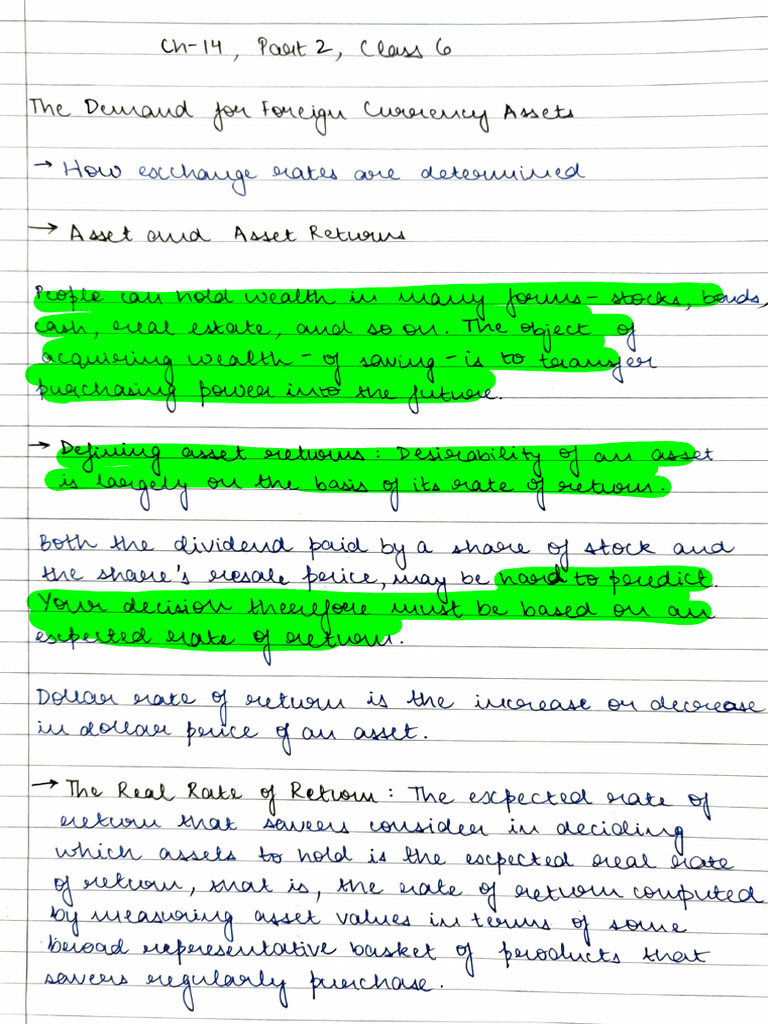 Ch-14, Part 2, Class 6
The Demand for Foreign Currency Assets
→ How exchange rates are determined
→ Asset and Asset Returns
People can hold wealth in many forms - stocks, bonds,
cash, real estate, and so on. The object of
acquiring wealth - of saving - is to transfer
purchasing power into the future.
→ Defining asset returns: Desirability of an asset
is largely on the basis of its rate of return.
Both the dividend paid by a share of stock and
the share's resale price, may be hard to predict.
Your decision therefore must be based on an
expected rate of return.
Dollar rate of return is the increase or decrease
in dollar price of an asset.
→ The Real Rate of Return: The expected rate of
return that savers consider in deciding
which assets to hold is the expected real rate
of return, that is, the rate of return computed
by measuring asset values in terms of some
broad representative basket of products that
savers regularly purchase.